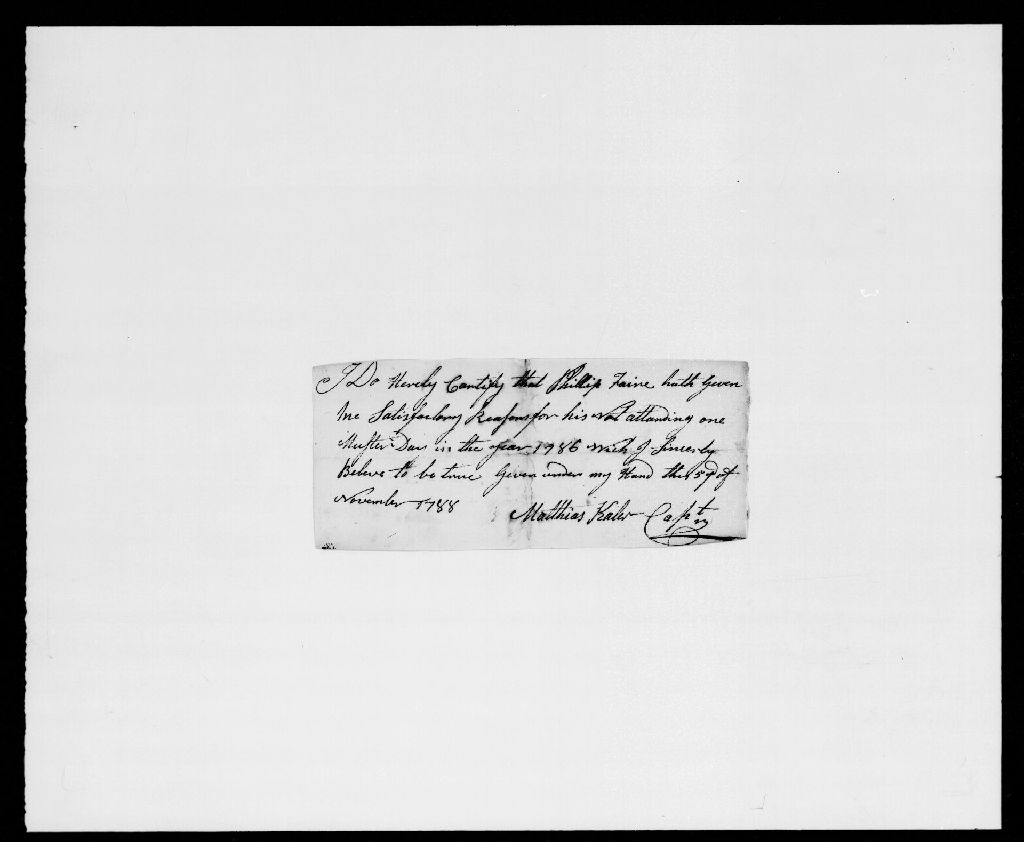 I Do Hereby Cartify that Phillip Faine hath Given
me Satisfactory Reasons for his Not attanding one
Muster Day in the year 1786 Wich I Sincerly
Beleve to be true Given under my Hand this 5 of
November 1788
Matthias Kaler Captn